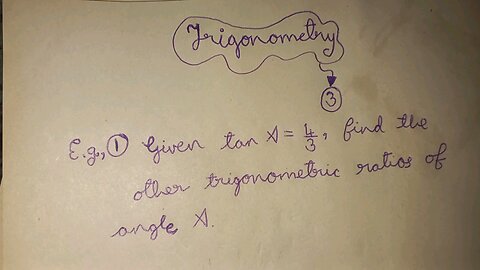 Trigonometry
3
E.g., 1 Given tan A = 4/3, find the
other trigonometric ratios of
angle A.